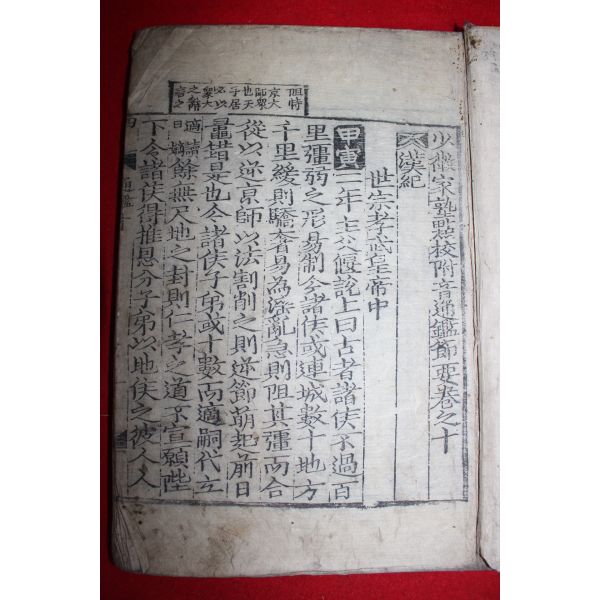 阻恃
京大師眾
也天子居
必以眾大
之辭言之
少微家塾點校附音通鑑節要卷之十
漢紀
世宗孝武皇帝中
甲寅二年主父偃說上曰古者諸侯不過百
里彊弱之形易制今諸侯或連城數十地方
千里緩則驕奢易為淫亂急則阻其彊而合
從以逆京師以法割削之則逆節萌起前日
鼂錯是也今諸侯子弟或十數而適嗣代立
適讀曰嫡餘無尺地之封則仁孝之道不宣願陛
下令諸侯得推恩分子弟以地侯之彼人人